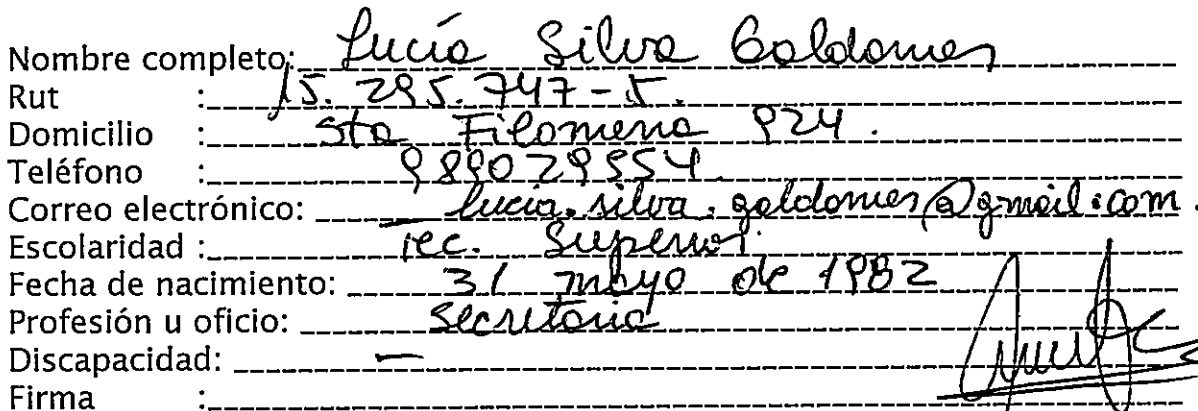 Nombre completo: Lucía Silva Galdames
Rut : 15.295.747-5.
Domicilio : Sta Filomena 924.
Teléfono : 989029554
Correo electrónico: lucia.silva.galdames@gmail.com.
Escolaridad : Tec. Superior.
Fecha de nacimiento: 31 mayo de 1982
Profesión u oficio: Secretaria
Discapacidad: —
Firma :